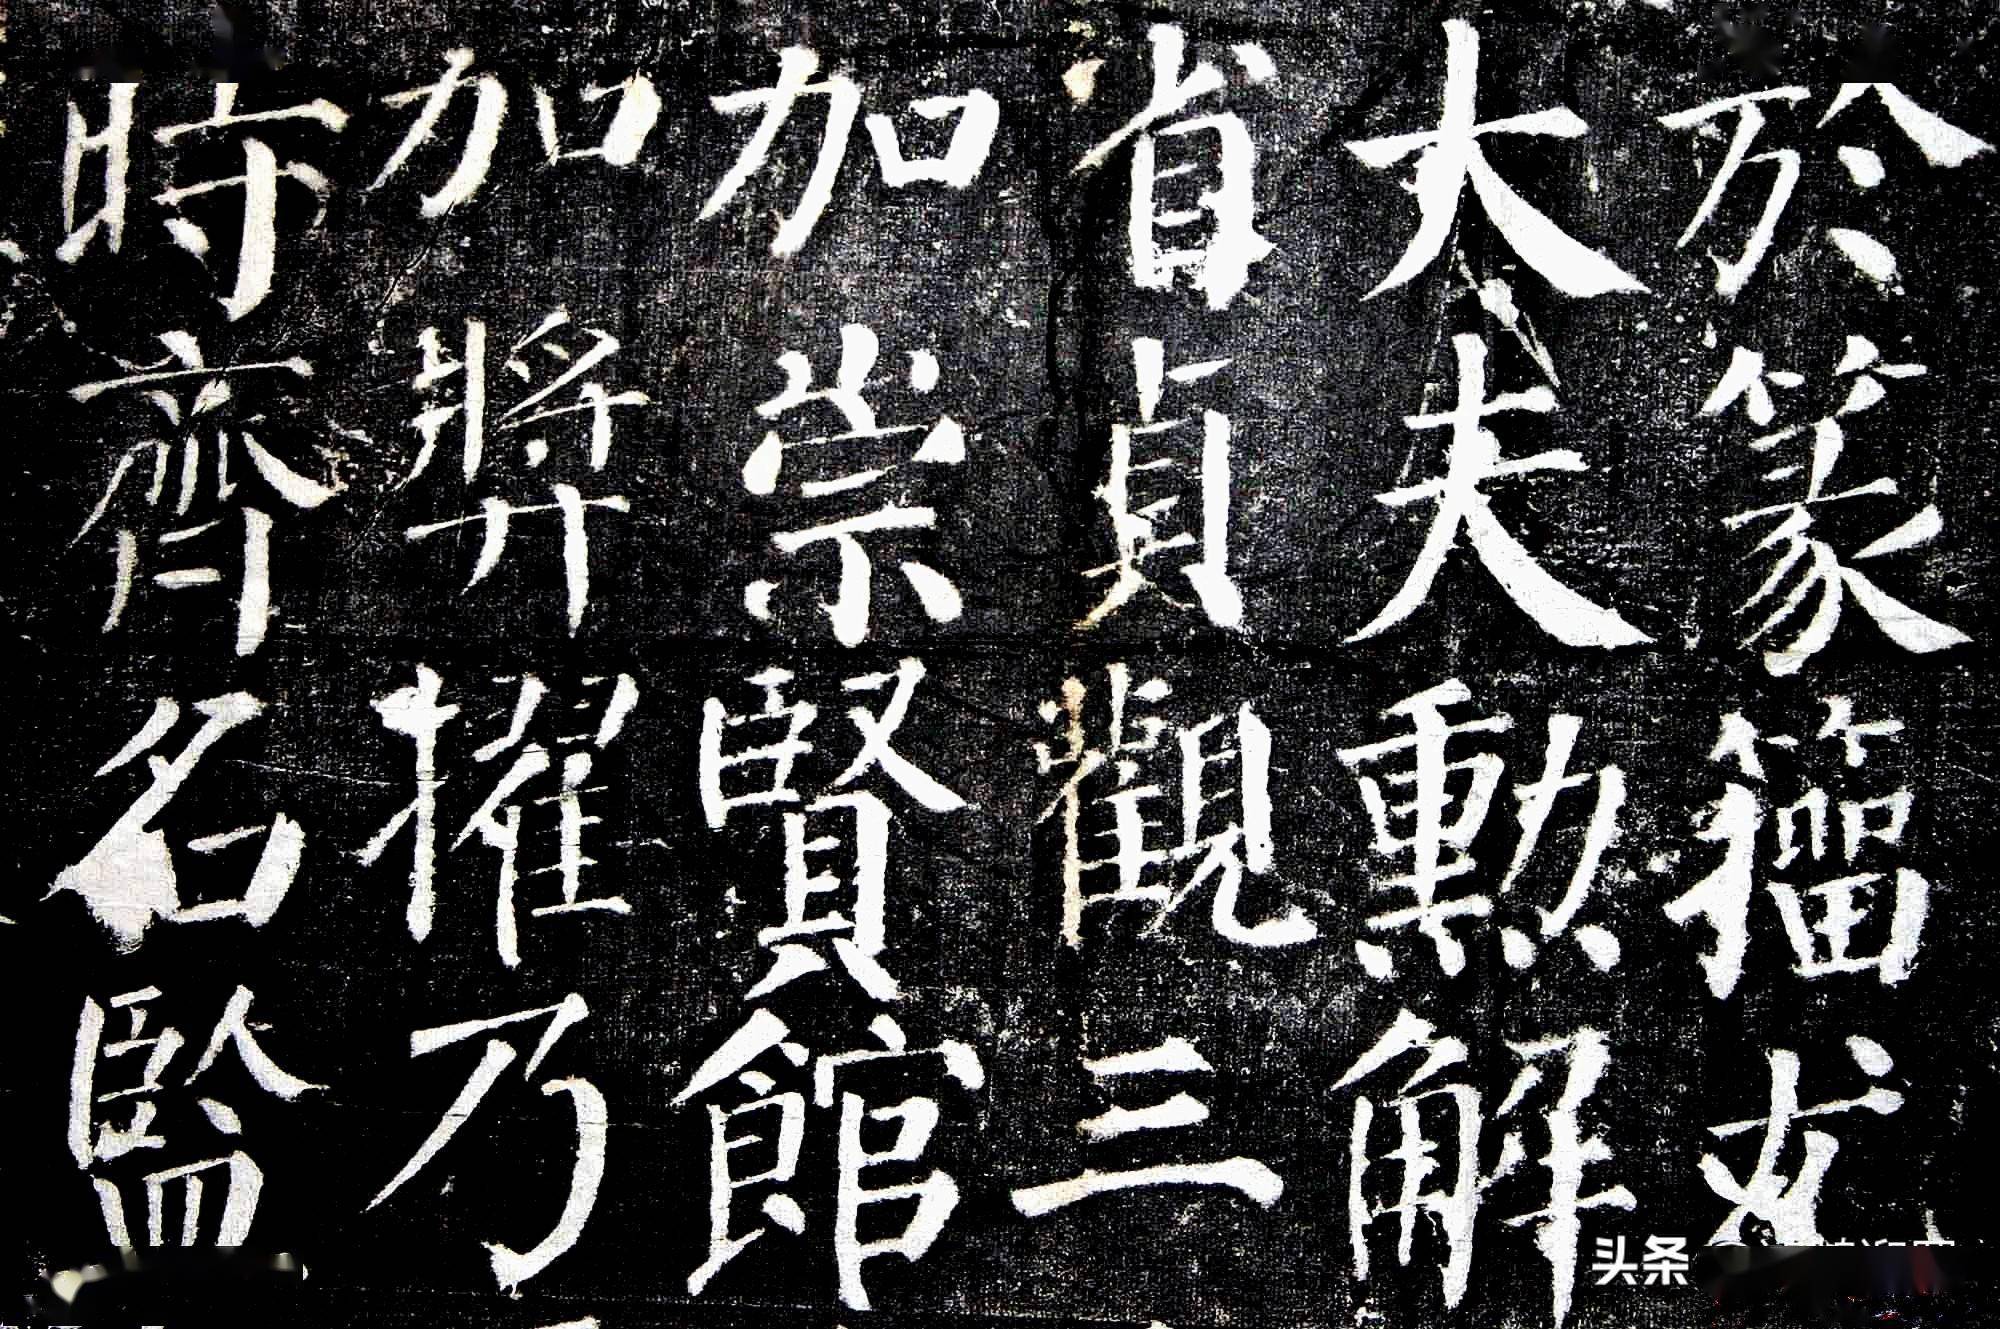 於篆籀尤
大夫勲解
省貞觀三
加崇賢館
加奬擢乃
時齊名監
头条